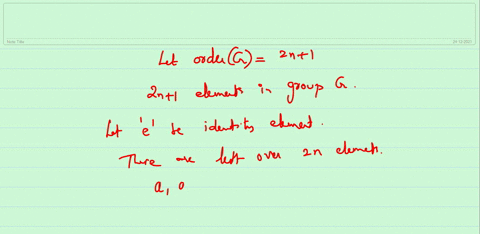 Let order(G) = 2n+1
2n+1 elements in group G.
Let 'e' be identity element.
There are left over 2n elements.
a, a